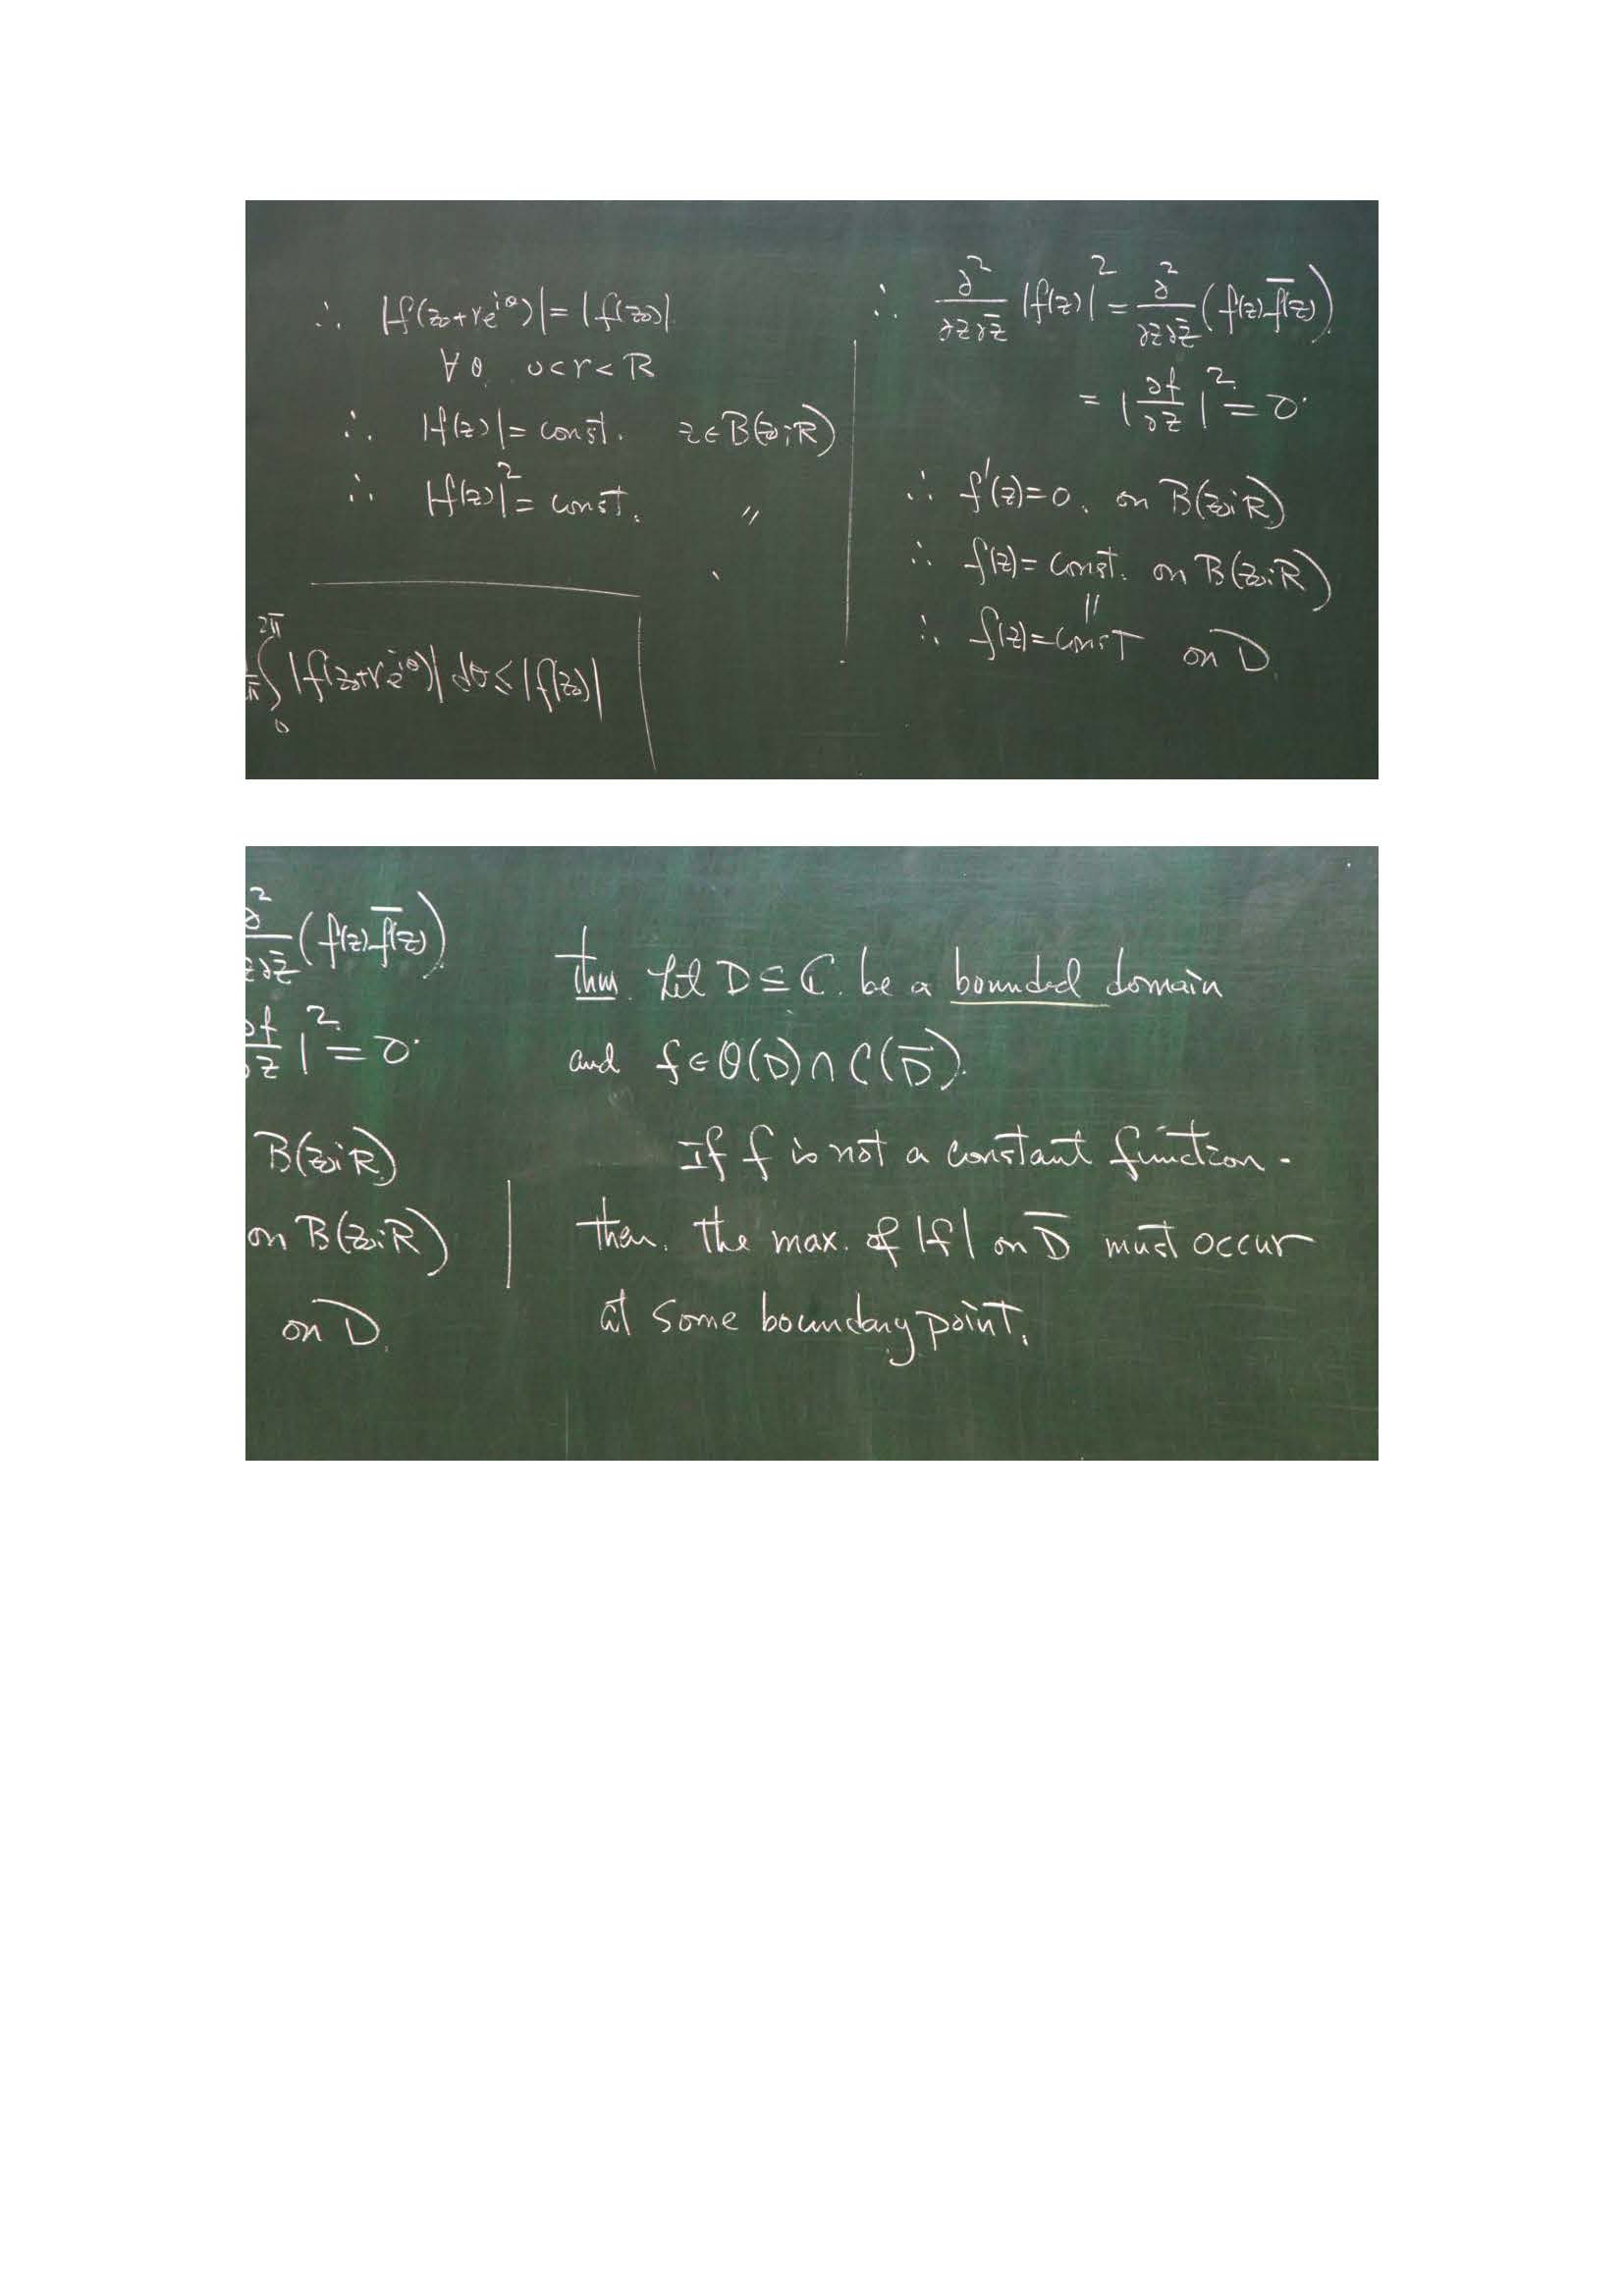 ∴ |f(z₀+re^{iθ})| = |f(z₀)|
∀ θ, 0<r<R
∴ |f(z)| = const. z∈B(z₀;R)
∴ |f(z)|² = const. 〃
∫₀^{2π} |f(z₀+re^{iθ})| dθ ≤ |f(z₀)|
∴ ∂²/∂z∂z̄ |f(z)|² = ∂²/∂z∂z̄ (f(z) \overline{f(z)})
= |∂f/∂z|² = 0.
∴ f'(z)=0. on B(z₀;R)
∴ f(z)= const. on B(z₀;R)
||
∴ f(z)=const on D.
∂²/∂z∂z̄ (f(z) \overline{f(z)})
∂f/∂z |² = 0.
B(z₀;R)
on B(z₀;R)
on D.
Thm. Let D ⊆ ℂ. be a bounded domain
and f∈O(D)∩C(D̄).
If f is not a constant function.
then. the max. of |f| on D̄ must occur
at some boundary point.